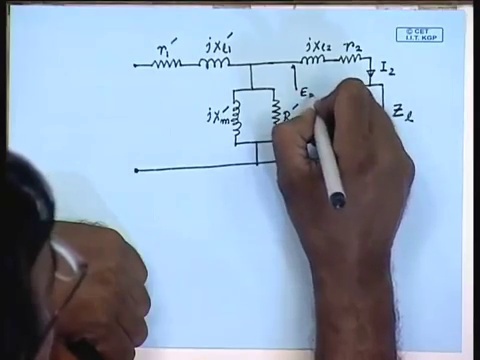 © CET
I.I.T. KGP
r₁′ jxₗ₁′ jxₗ₂ r₂
I₂
E₂
jx′ₘ R′ Zₗ